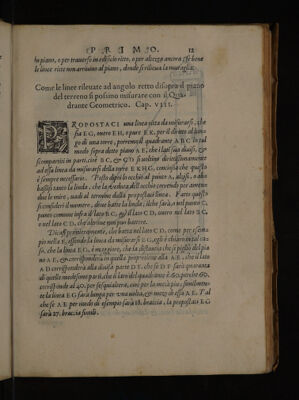 PRIMO. 12
to piano, o per trauerso in edificio ritto, o per altezza ancora: se bene
le linee ritte non arriuino al piano, donde si rilieua la muraglia.
Come le linee rileuate ad angolo retto disopra il piano
del terreno si possino misurare con il Qua
drante Geometrico. Cap. VIII.
PROPOSTACI una linea ritta da misurarsi, che
sia EG, ouero EH, o pure EK, per il diritto al lun-
go di una torre, porremo il quadrante ABC D in tal
modo sopra detto piano AE, che i lati suoi diuisi,
& scompartiti in parti, cioè BC, & CD si uoltino dirittissimamente
ad essa linea da misurarsi della torre EKHG, conciosia che questo
è sempre necessario. Posto dipoi l'occhio al punto A, alzisi, o
bassisi tanto la linda, che la ueduta dell'occhio correndo per amen-
due le mire, uadi al termine della propostaci linea. Fatto questo
si consideri il numero, doue batte la linda; il che sarà, o nel punto C,
punto comune infra il lato BC, & CD, ouero nel lato BC,
o nel lato CD, che altrimenti non può battere.
Dicasi primieramente, che batta nel lato CD, come per esem-
pio nella E, essendo la linea da misurarsi EG, egli è chiaro in tal ca-
so, che la linea EG, è minore, che la distanza che si piglia del pia
no AE, & che corrisponderà in quella proportione alla AE, che il lato
AD corrisponderà alla diuisa parte DF. che se DF sarà quaranta
di quelle medesime parti, che il lato del quadrante è 60. perche 60.
corrisponde al 40. per sesquialtera, cioè per la metà più: similmen-
te la linea EG sarà lunga per una uolta, & mezo di essa AE. Tal
che se AE per modo di esempio sarà 18. braccia, la propostaci EG
sarà 27. braccia simili.